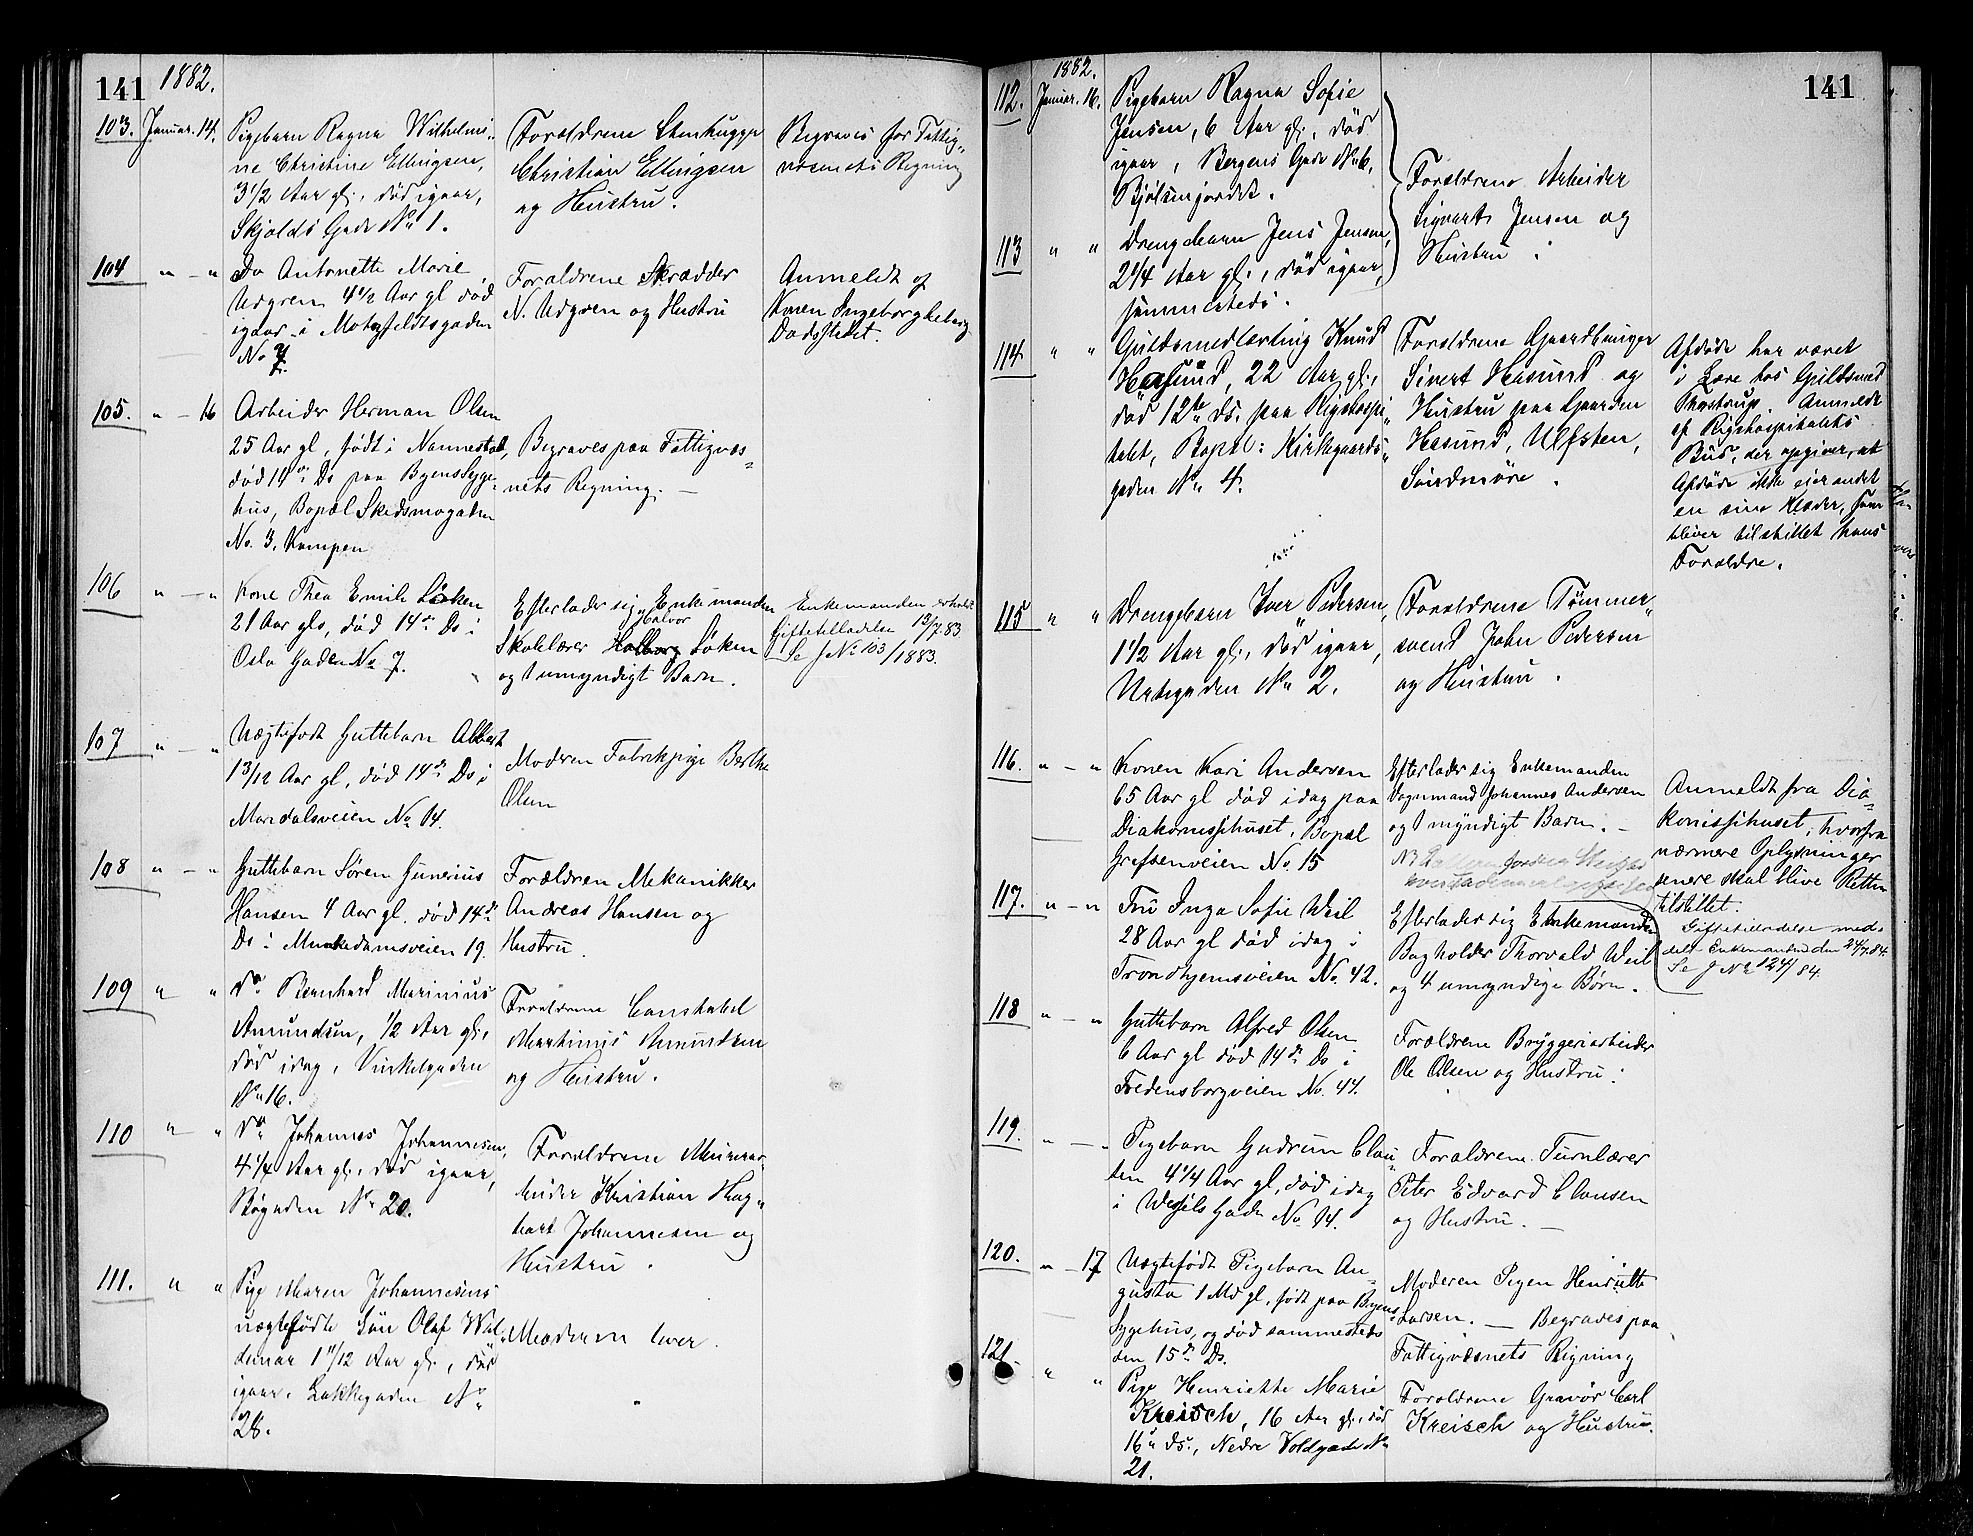 141 1882.
103. Januar. 14. Pigebarn Ragna Wilhelmi-
ne Christine Ellingsen,
3 1/2 Aar gl., død igaar,
Skjolds Gade No 1.
Forældrene Stenhugger
Christian Ellingsen
og Hustru.
Begraves for Fattig-
væsenets Regning
104 " - " Do Antonette Marie
Udgren 4 1/2 Aar gl død
igaar i Motzfeldtsgaden
No 7.
Forældrene Skrædder
N. Udgren og Hustru
Anmeldt af
Konen Ingeborg
Dødsstedet.
105. " - 16 Arbeider Herman Olsen
25 Aar gl, født i Nannestad,
død 14de Ds paa Byens Syge-
hus, Bopæl Skedsmogaden
No. 3, Kampen
Begraves paa Fattigvæs-
nets Regning. -
106 " - " Kone Thea Emile Løken
21 Aar gl, død 14de Ds i
Oslo Gaden No 7.
Efterlader sig Enkemanden
Halvor
Skolelærer Halborg Løken
og 1 umyndigt Barn.
Enkemanden erholdt
Giftetilladelse 12/7 83
Se J No 103/1883.
107 " - " Uægtefødt Guttebarn Albert
1 3/12 Aar gl, død 14de Ds i
Maridalsveien No 14.
Moderen Fabrikpige Berthe
Olsen
108 " - " Guttebarn Søren Gunerius
Hansen 4 Aar gl. død 14de
Ds i Munkedamsveien 19.
Forældren Mekanikker
Andreas Hansen og
Hustru.
109 " " Do Bernhard Marinius
Amundsen, 1/2 Aar gl.,
død idag, Vinkelgaden
No 16.
Forældrene Constabel
Martinius Amundsen
og Hustru.
110 " " Do Johannes Johannesen,
4 1/4 Aar gl., død igaar,
Bøgaden No 20.
Forældrene Murerar-
beider Kristian Hag-
bart Johannesen og
Hustru.
111. " " Pige Maren Johannesens
uægtefødte Søn Olaf Wal-
demar 1 11/12 Aar gl., død
igaar. Lakkegaden No
28.
Moderen lever.
141
1882.
112. Januar. 16. Pigebarn Ragna Sofie
Jensen, 6 Aar gl., død
igaar, Bergens Gade No 6,
Bjølsenjordet.
113 " " Drengebarn Jens Jensen,
2 1/4 Aar gl., død igaar,
sammesteds.
Forældrene Arbeider
Sigvart Jensen og
Hustru.
114 " " Guldsmedlærling Knud
Hasund, 22 Aar gl.,
død 12te ds. paa Rigshospi-
talet, Bopæl: Kirkegaards-
gaden No 4.
Forældrene Gaardbruger
Sivert Hasund og
Hustru paa Gaarden
Hasund, Ulfsten,
Søndmøre.
Afdøde har været
i Lære hos Guldsmed
Thostrup. Anmeldt
af Rigshospitalets
Bud, der opgiver, at
Afdøde ikke eier andet
en sine Klæder, som
bliver tilstillet hans
Forældre.
115 " " Drengebarn Iver Pedersen,
1 1/2 Aar gl., død igaar,
Urtegaden No 2.
Forældrene Tømmer-
svend John Pedersen
og Hustru.
116. " - " Konen Kari Andersen
65 Aar gl død idag paa
Diakonissehuset, Bopæl
Grefsenveien No. 15
Efterlader sig Enkemanden
Vognmand Johannes Andersen
og 1 myndigt Barn. -
Anmeldt fra Dia-
konissehuset, hvorfra
nærmere Oplysninger
senere skal blive Retten
tilstillet.
117. " - " Fru Inga Sofie Weil
28 Aar gl død idag i
Trondhjemsveien No. 42.
Efterlader sig Enkemanden
Bogholder Thorvald Weil
og 4 umyndige Børn.
Giftetilladelse med-
delt Enkemanden den 24/7 84.
Se J No 124/84.
118 " - " Guttebarn Alfred Olsen
6 Aar gl død 14de Ds i
Fredensborgveien No. 44.
Forældrene Bryggeriarbeider
Ole Olsen og Hustru.
119. " - " Pigebarn Gudrun Clau-
sen 4 1/4 Aar gl, død idag
i Wessels Gade No. 14.
Forældrene Turnlærer
Peter Edvard Clausen
og Hustru. -
120. " - 17 Uægtefødt Pigebarn Au-
gusta 1 Md gl, født paa Byens
Sygehus, og død sammesteds
den 15de Ds.
Moderen Pigen Henriette
Larsen. - Begraves paa
Fattigvæsnets Regning
121. " " Pige Henriette Marie
Kreisch, 16 Aar gl., død
16de ds., Nedre Voldgade No
21.
Forældrene Gravør Carl
Kreisch og Hustru.